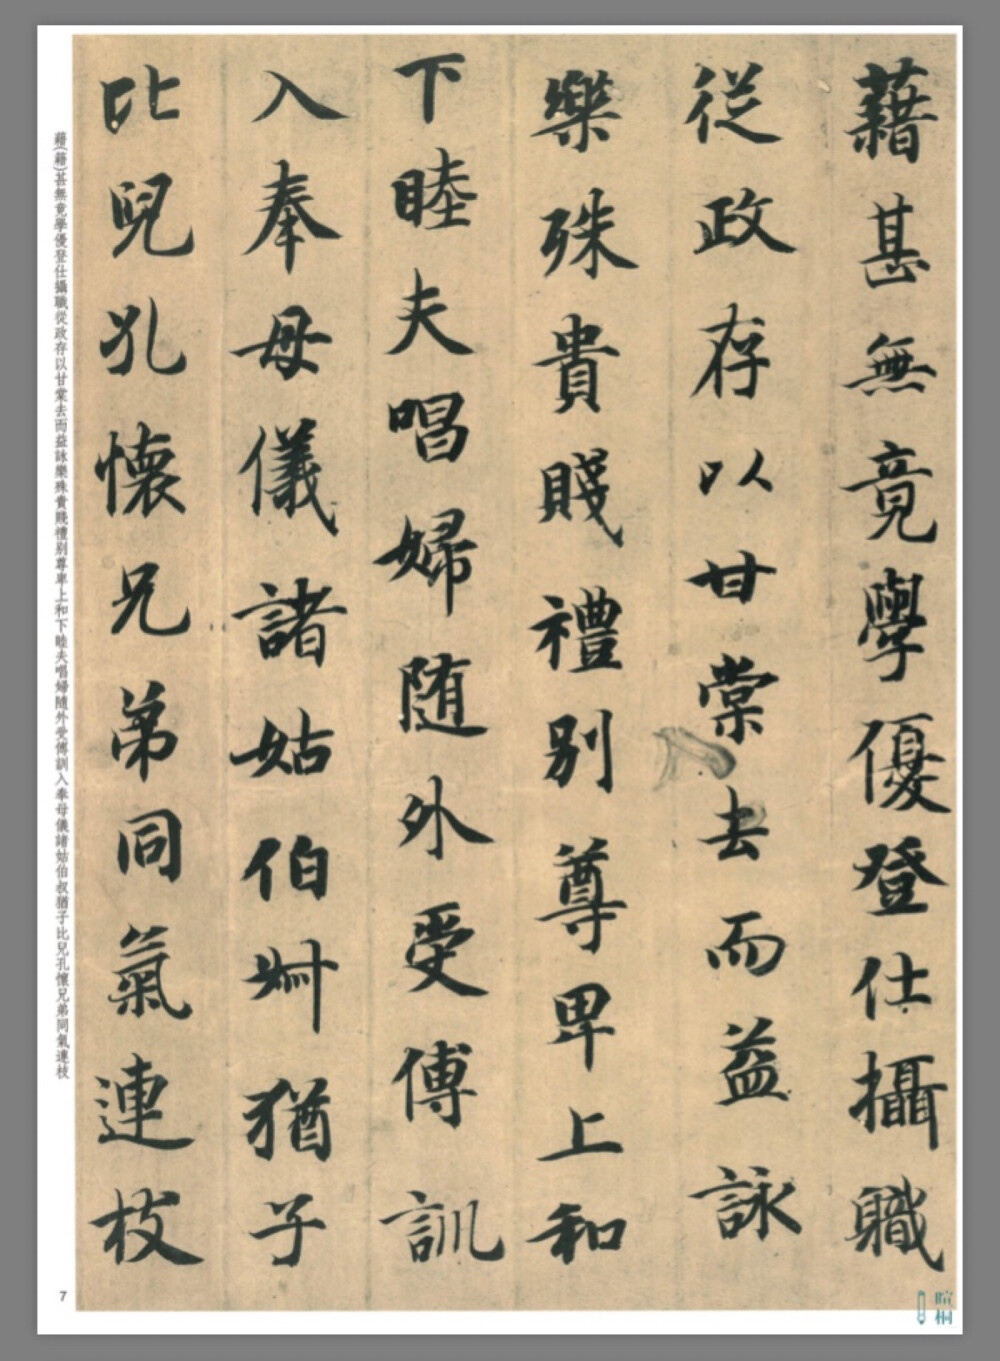 藉甚無竟學優登仕攝職
從政存以甘棠去而益詠
樂殊貴賤禮別尊卑上和
下睦夫唱婦随外受傅訓
入奉母儀諸姑伯叔猶子
比兒孔懷兄弟同氣連枝
藉(籍)甚無竟學優登仕攝職從政存以甘棠去而益詠樂殊貴賤禮別尊卑上和下睦夫唱婦随外受傅訓入奉母儀諸姑伯叔猶子比兒孔懷兄弟同氣連枝
7
暄桐